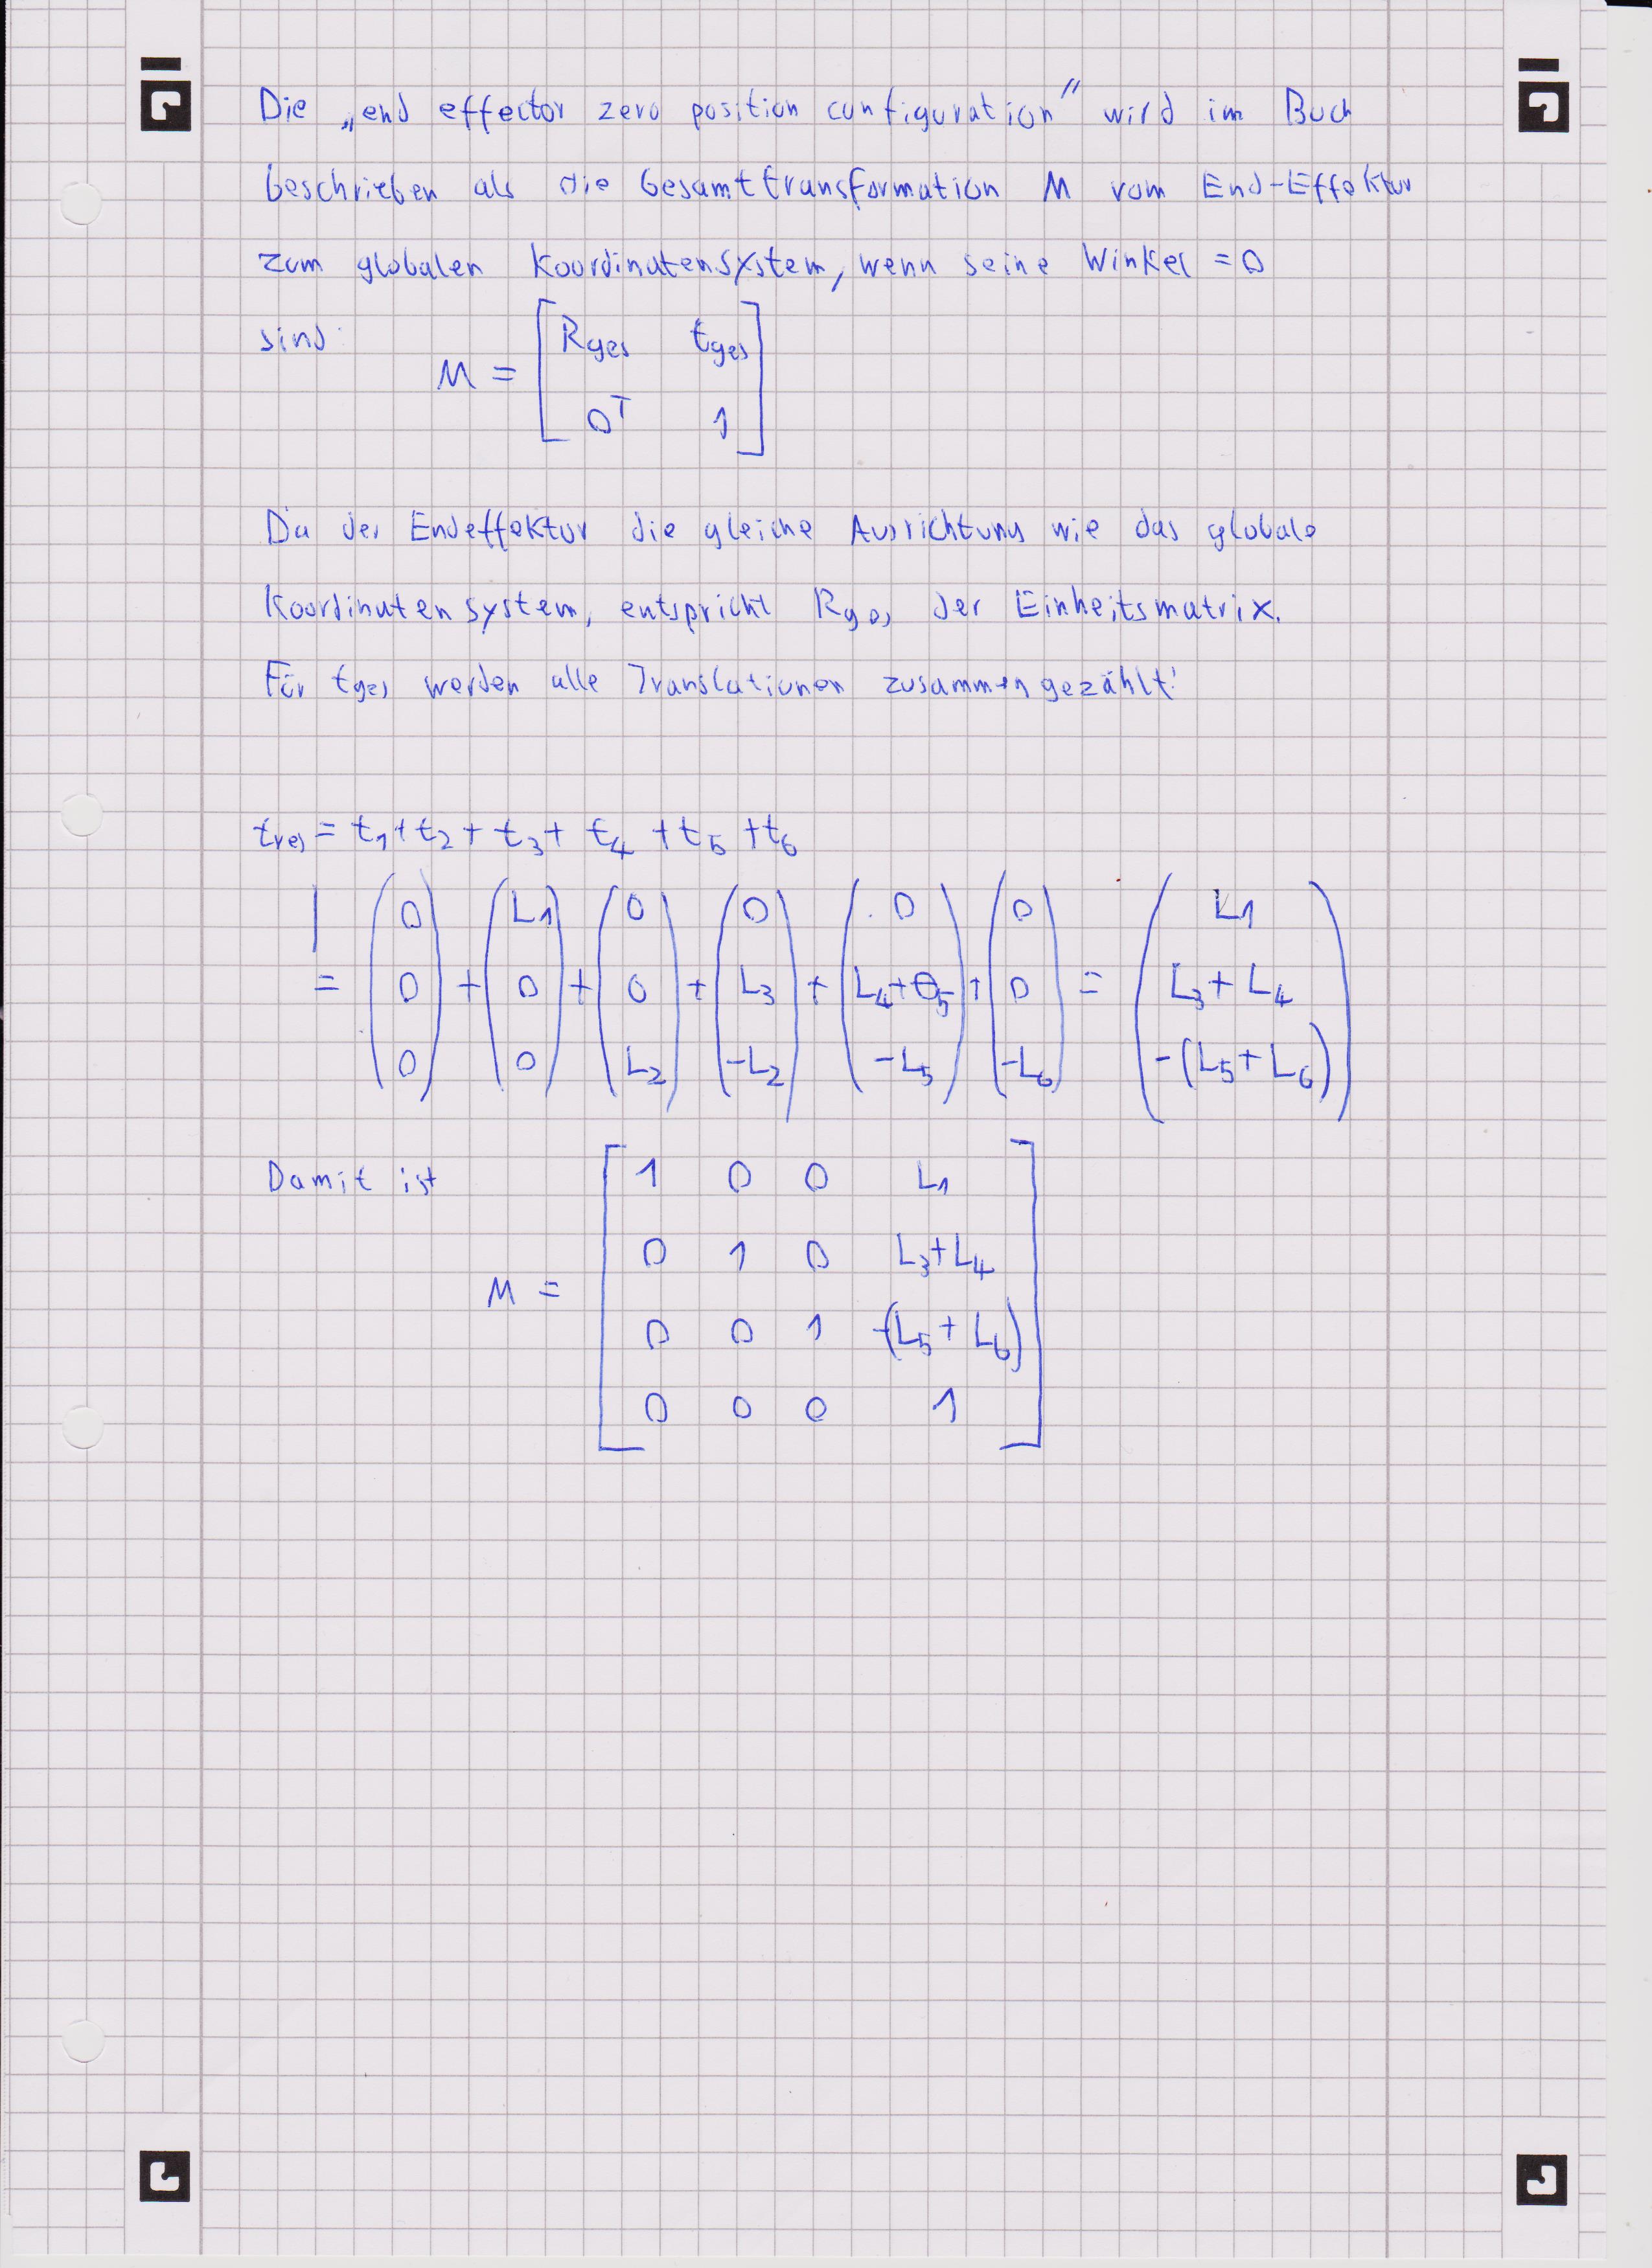 Die „end effector zero position configuration" wird im Buch
beschrieben als die Gesamttransformation M vom End-Effektor
zum globalen Koordinatensystem, wenn seine Winkel = 0
sind:
M = [ R_ges t_ges ; 0^T 1 ]
Da der Endeffektor die gleiche Ausrichtung wie das globale
Koordinatensystem, entspricht R_ges der Einheitsmatrix.
Für t_ges werden alle Translationen zusammengezählt:
t_ges = t_1 + t_2 + t_3 + t_4 + t_5 + t_6
= (0, 0, 0) + (L_1, 0, 0) + (0, 0, L_2) + (0, L_3, -L_2) + (0, L_4+θ_5, -L_5) + (0, 0, -L_6) = (L_1, L_3+L_4, -(L_5+L_6))
Damit ist
M =
1 0 0 L_1
0 1 0 L_3+L_4
0 0 1 -(L_5+L_6)
0 0 0 1